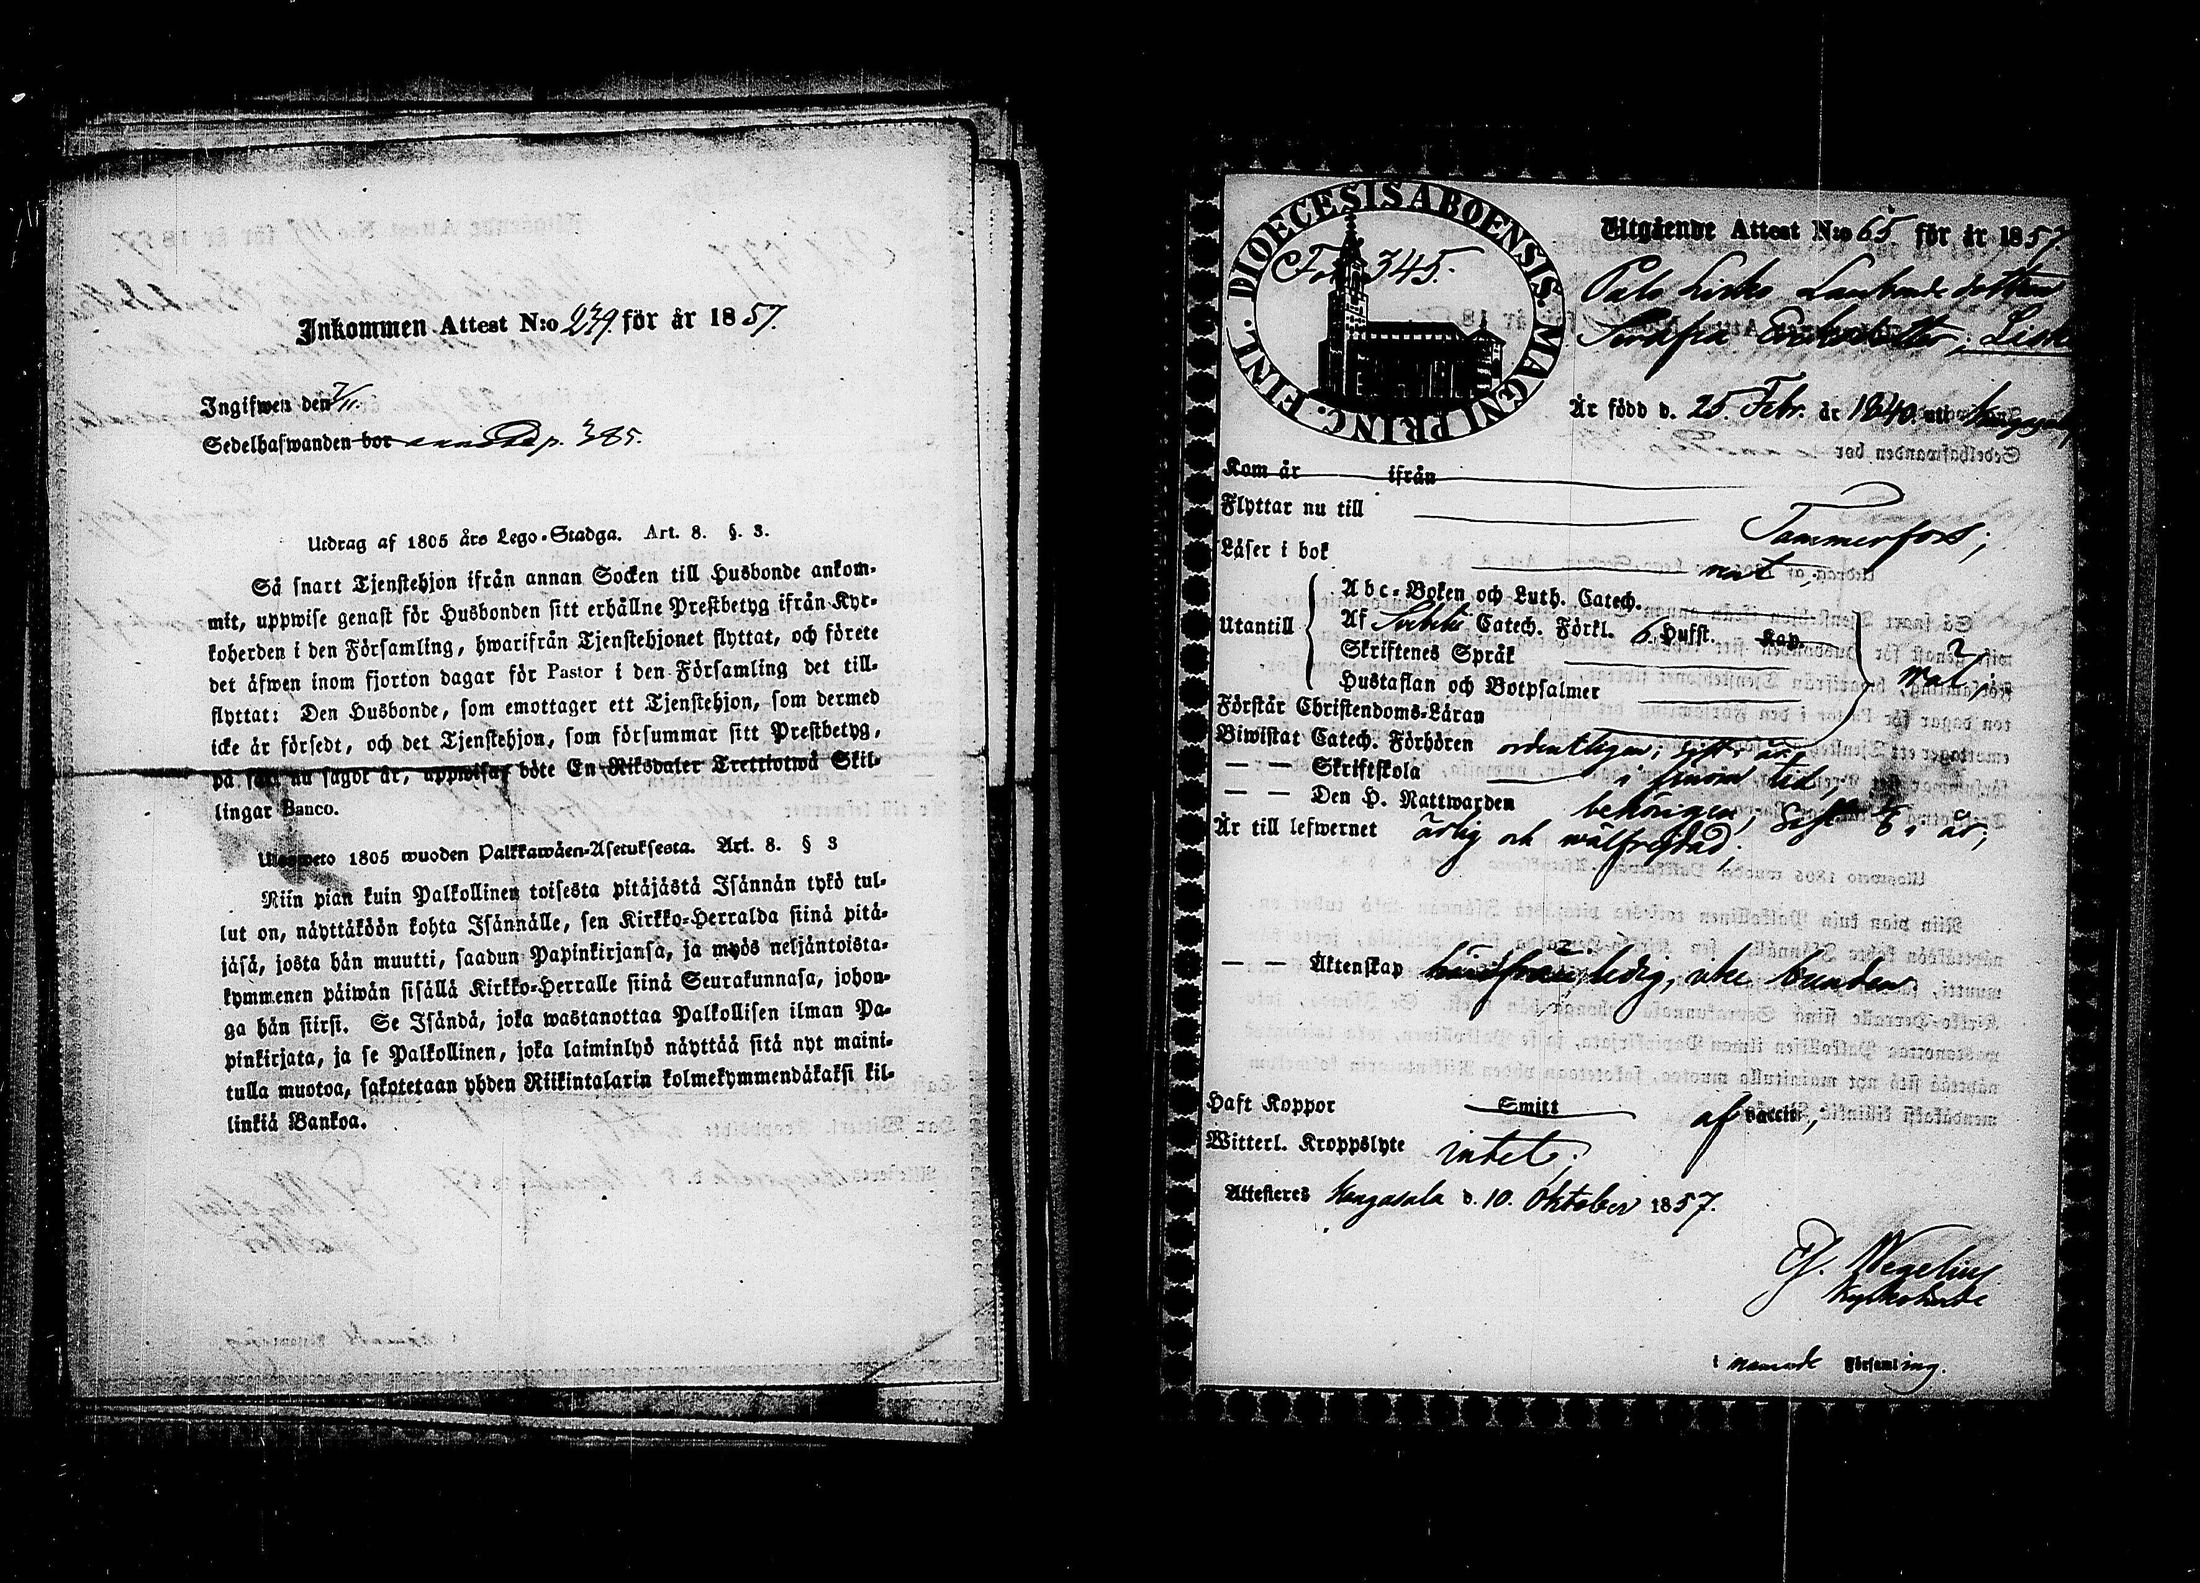 Inkommen Attest N:o 239. för år 1857.
Ingifwen den 7/11.
Sedelhafwanden bor p. 385.
Utdrag af 1805 års Lego-Stadga. Art. 8. §. 3.
Så snart Tjenstehjon ifrån annan Socken till Husbonde ankom-
mit, uppwise genast för Husbonden sitt erhållne Prestbetyg ifrån Kyr-
koherden i den Församling, hwarifrån Tjenstehjonet flyttat, och förete
det äfwen inom fjorton dagar för Pastor i den Församling det till-
flyttat: Den Husbonde, som emottager ett Tjenstehjon, som dermed
icke är försedt, och det Tjenstehjon, som försummar sitt Prestbetyg,
på sätt nu sagdt är, uppwisa, böte En Riksdaler Trettiotwå Skil-
lingar Banco.
Ulosweto 1805 wuoden Palkkawäen-Asetuksesta. Art. 8. § 3
Niin pian kuin Palkollinen toisesta pitäjästä Isännän tykö tul-
lut on, näyttäköön kohta Isännälle, sen Kirkko-Herralda siinä pitä-
jäsä, josta hän muutti, saadun Papinkirjansa, ja myös neljäntoista-
kymmenen päiwän sisällä Kirkko-Herralle siinä Seurakunnasa, johon-
ga hän siirsi. Se Isändä, joka wastanottaa Palkollisen ilman Pa-
pinkirjata, ja se Palkollinen, joka laiminlyö näyttää sitä nyt maini-
tulla muotoa, sakotetaan yhden Riikintalarin kolmekymmendäkaksi kil-
linkiä Bankoa.
DIOECESIS ABOENSIS. MAGNI PRINC. FINL.
Fol. 345.
Utgående Attest N:o 65. för år 1857
Serafia
Är född d. 25. Febr. år 1840. uti
Kom år ifrån
Flyttar nu till Tammerfors;
Läser i bok
Utantill
Abc-Boken och Luth. Catech.
Af Catech. Förkl. 6. Hufst. Kap.
Skriftenes Språk
Hustaflan och Botpsalmer
Förstår Christendoms-Läran
Biwistat Catech. Förhören ordentligen; sist i år
— — Skriftskola i sinom tid;
— — Den H. Nattwarden behörigen; sist i år;
Är till lefwernet ärlig och wälfrejdad;
— — Äktenskap ledig, obunden
Haft Koppor Smitt af vaccin;
Witterl. Kroppslyte intet;
Attesteres Kangasala d. 10. Oktober 1857.
Wegelius
Kyrkoherde
i nämnde Församling.